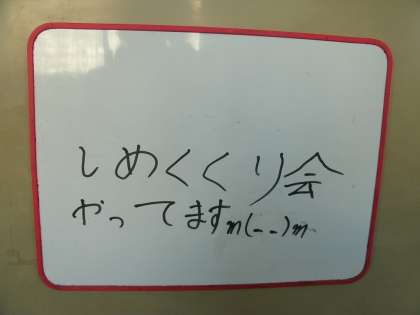 しめくくり会
やってますm(--)m